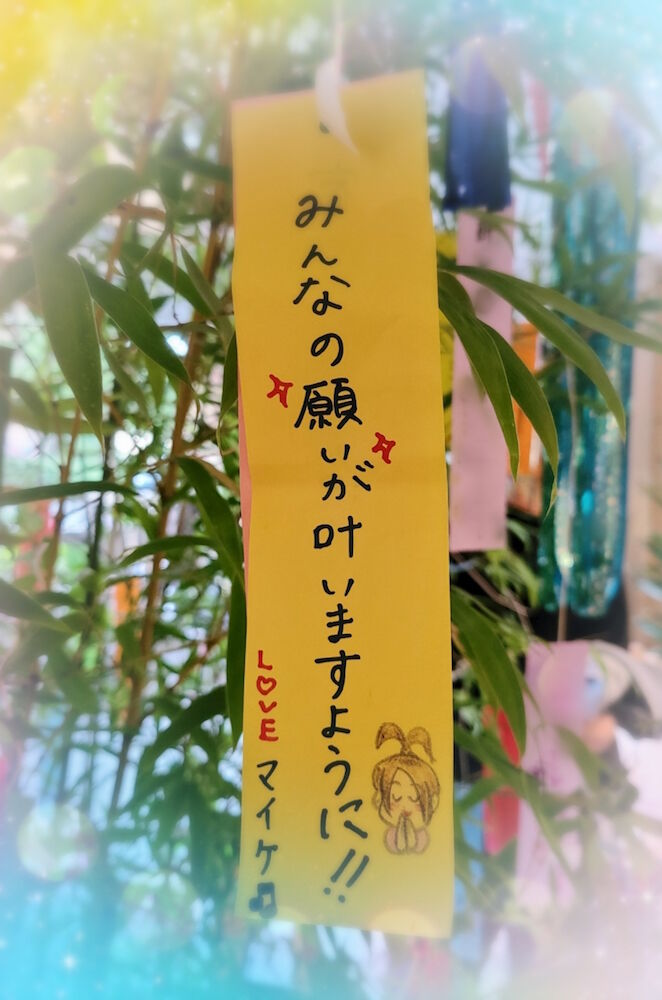 みんなの願いが叶いますように!!
LOVE マイケ♫